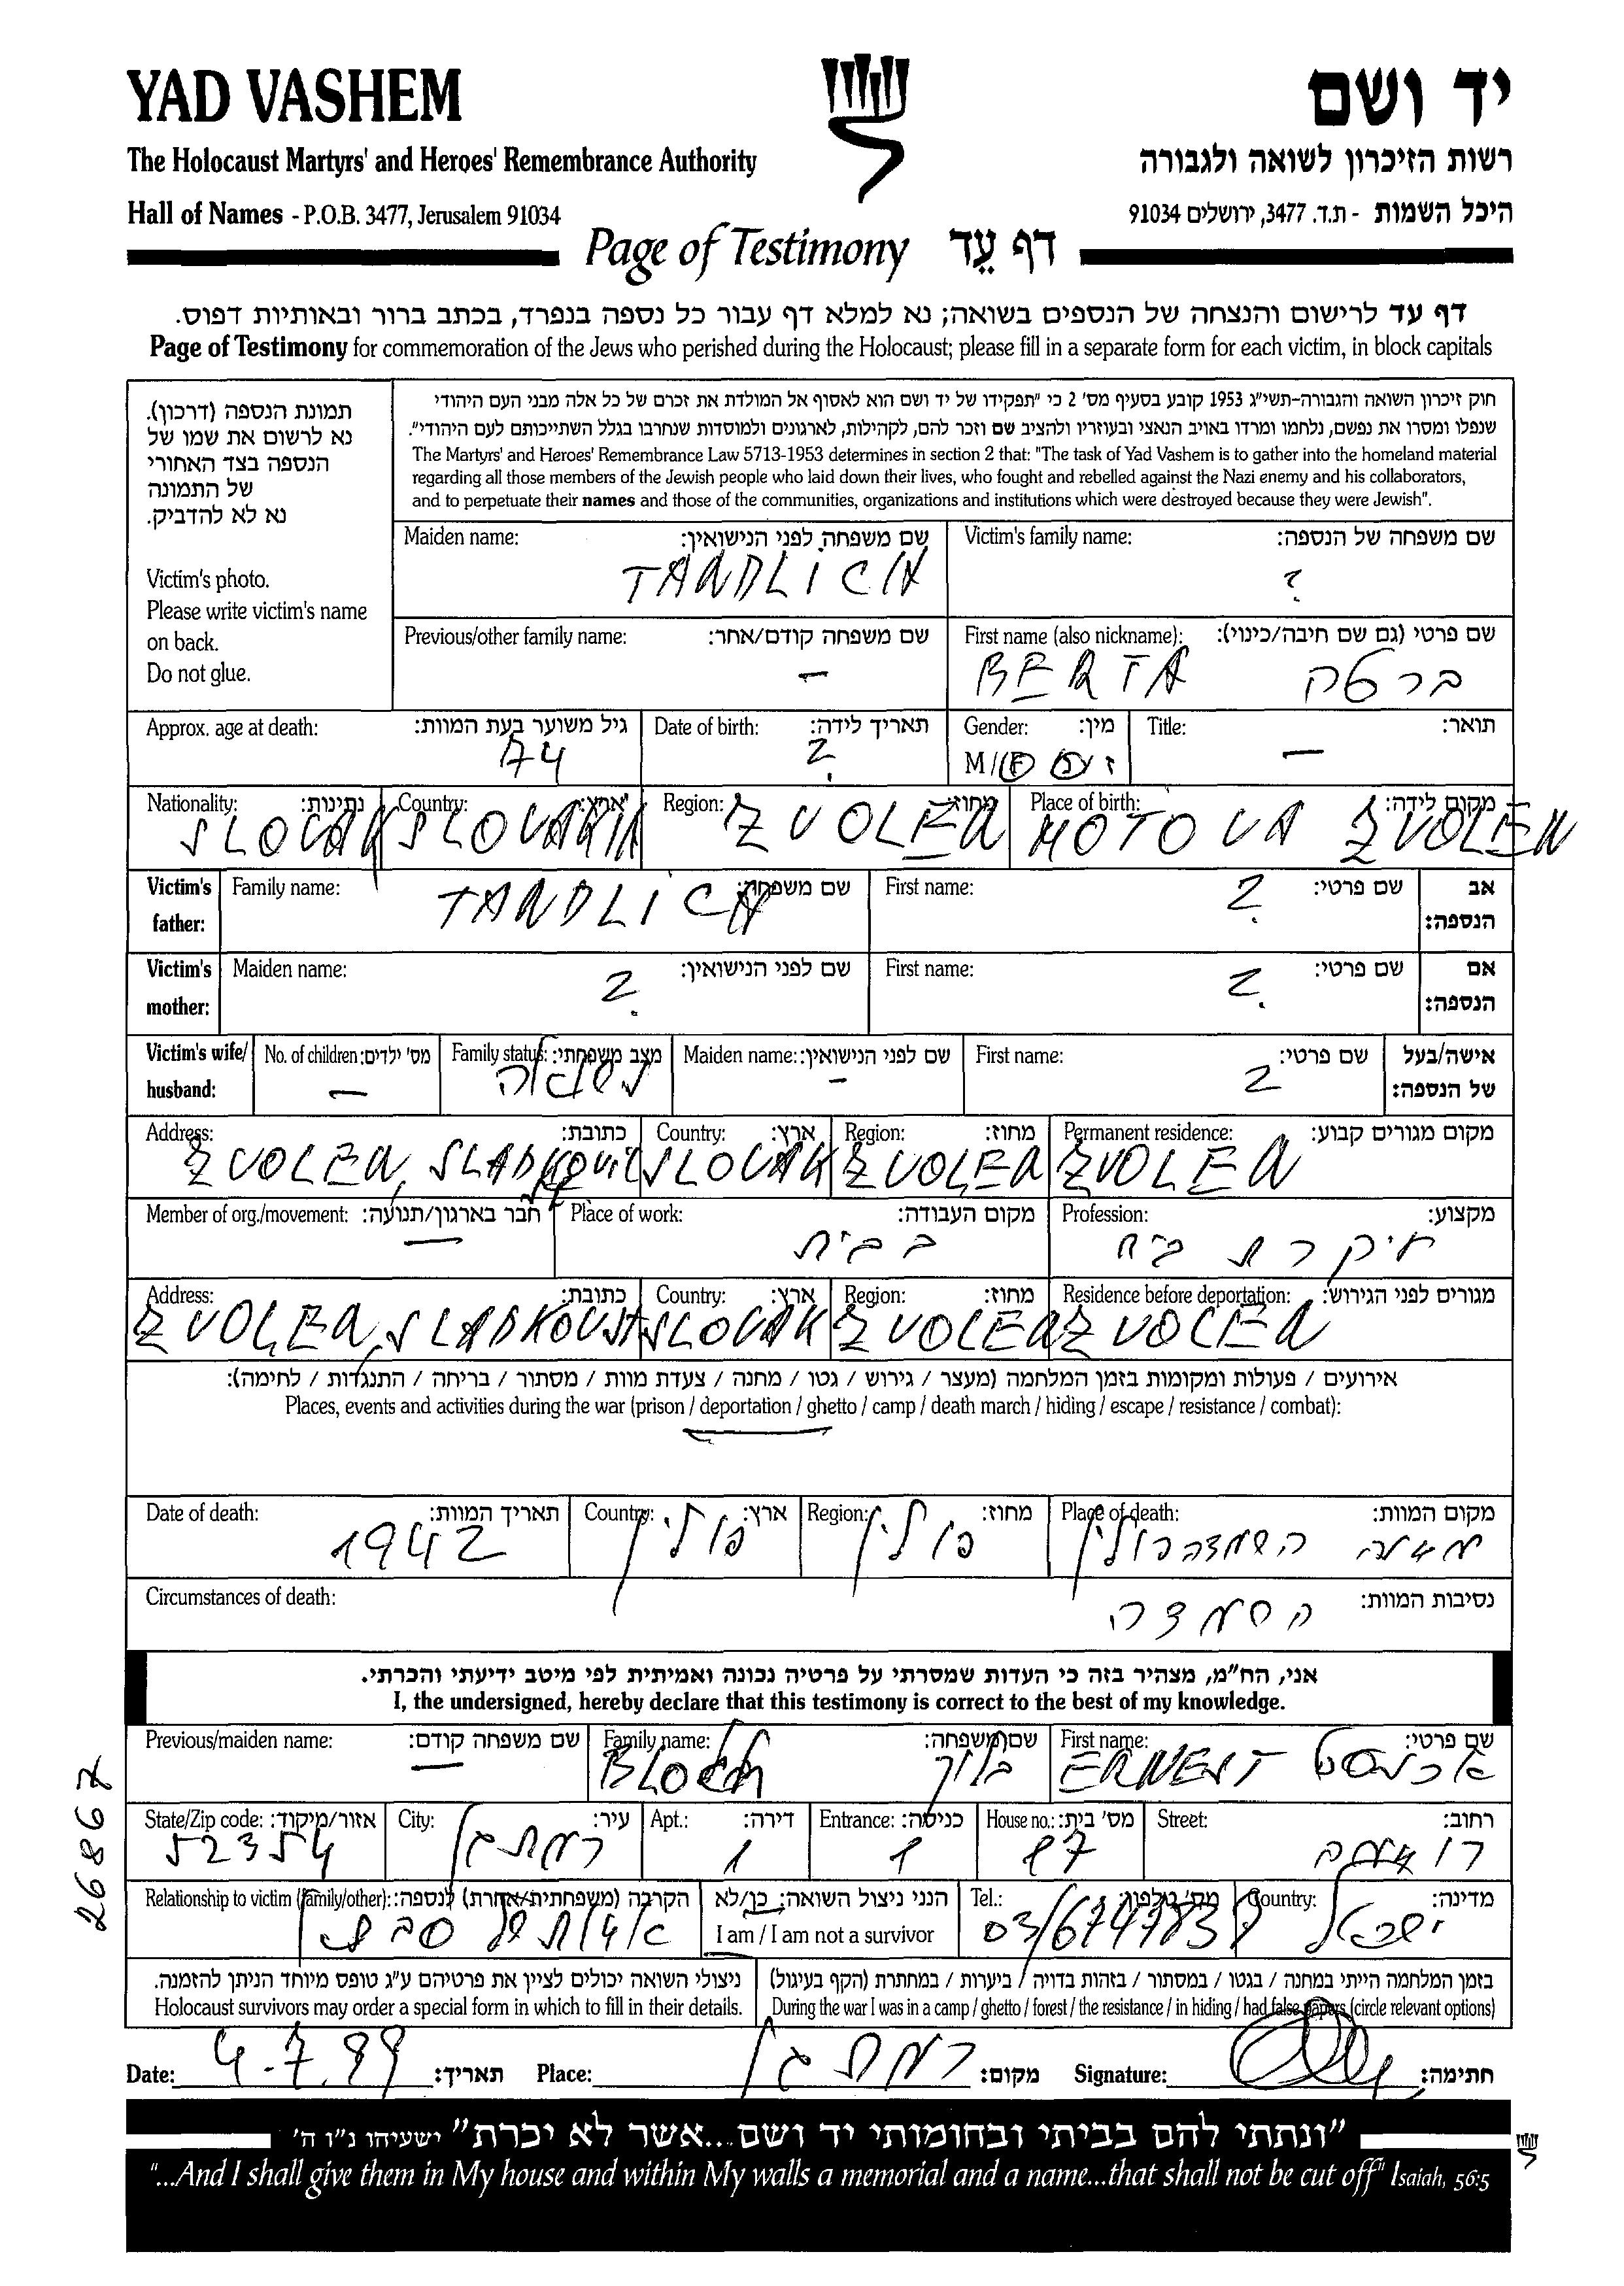 YAD VASHEM
יד ושם
The Holocaust Martyrs' and Heroes' Remembrance Authority
רשות הזיכרון לשואה ולגבורה
Hall of Names - P.O.B. 3477, Jerusalem 91034
היכל השמות - ת.ד. 3477, ירושלים 91034
Page of Testimony דף עֵד
דף עד לרישום והנצחה של הנספים בשואה; נא למלא דף עבור כל נספה בנפרד, בכתב ברור ובאותיות דפוס.
Page of Testimony for commemoration of the Jews who perished during the Holocaust; please fill in a separate form for each victim, in block capitals
תמונת הנספה (דרכון).
נא לרשום את שמו של
הנספה בצד האחורי
של התמונה
נא לא להדביק.
Victim's photo.
Please write victim's name
on back.
Do not glue.
חוק זיכרון השואה והגבורה-תשי"ג 1953 קובע בסעיף מס' 2 כי "תפקידו של יד ושם הוא לאסוף אל המולדת את זכרם של כל אלה מבני העם היהודי
שנפלו ומסרו את נפשם, נלחמו ומרדו באויב הנאצי ובעוזריו ולהציב שם וזכר להם, לקהילות, לארגונים ולמוסדות שנחרבו בגלל השתייכותם לעם היהודי".
The Martyrs' and Heroes' Remembrance Law 5713-1953 determines in section 2 that: "The task of Yad Vashem is to gather into the homeland material
regarding all those members of the Jewish people who laid down their lives, who fought and rebelled against the Nazi enemy and his collaborators,
and to perpetuate their names and those of the communities, organizations and institutions which were destroyed because they were Jewish".
Maiden name: שם משפחה לפני הנישואין: Victim's family name: שם משפחה של הנספה:
TANDLICH ?
Previous/other family name: שם משפחה קודם/אחר: First name (also nickname): שם פרטי (גם שם חיבה/כינוי):
- BERTA ברטה
Approx. age at death: גיל משוער בעת המוות: Date of birth: תאריך לידה: Gender: מין: Title: תואר:
74 ? M/F ז/נ -
Nationality: נתינות: Country: ארץ: Region: מחוז: Place of birth: מקום לידה:
SLOVAK SLOVAKIA ZVOLEN MOTOVA ZVOLEN
Victim's father: Family name: שם משפחה: First name: שם פרטי: אב הנספה:
TANDLICH ?
Victim's mother: Maiden name: שם לפני הנישואין: First name: שם פרטי: אם הנספה:
? ?
Victim's wife/husband: No. of children: מס' ילדים: Family status: מצב משפחתי: Maiden name: שם לפני הנישואין: First name: שם פרטי: אישה/בעל של הנספה:
- נשואה - ?
Address: כתובת: Country: ארץ: Region: מחוז: Permanent residence: מקום מגורים קבוע:
ZVOLEN, SLOVAK ZVOLEN ZVOLEN
Member of org./movement: חבר בארגון/תנועה: Place of work: מקום העבודה: Profession: מקצוע:
- בבית עקרת בית
Address: כתובת: Country: ארץ: Region: מחוז: Residence before deportation: מגורים לפני הגירוש:
ZVOLEN, SLOVAK ZVOLEN ZVOLEN
אירועים / פעולות ומקומות בזמן המלחמה (מעצר / גירוש / גטו / מחנה / צעדת מוות / מסתור / בריחה / התנגדות / לחימה):
Places, events and activities during the war (prison / deportation / ghetto / camp / death march / hiding / escape / resistance / combat):
Date of death: תאריך המוות: Country: ארץ: Region: מחוז: Place of death: מקום המוות:
1942 פולין פולין מחנה השמדה פולין
Circumstances of death: נסיבות המוות:
השמדה
אני, הח"מ, מצהיר בזה כי העדות שמסרתי על פרטיה נכונה ואמיתית לפי מיטב ידיעתי והכרתי.
I, the undersigned, hereby declare that this testimony is correct to the best of my knowledge.
Previous/maiden name: שם משפחה קודם: Family name: שם משפחה: First name: שם פרטי:
- BLOCH בלוך ERNEST ארנסט
State/Zip code: אזור/מיקוד: City: עיר: Apt.: דירה: Entrance: כניסה: House no.: מס' בית: Street: רחוב:
52354 רמת גן 1 1
Relationship to victim (family/other): הקרבה (משפחתית/אחרת) לנספה: הנני ניצול השואה: כן/לא Tel.: מס' טלפון: Country: מדינה:
I am / I am not a survivor 03/ ישראל
ניצולי השואה יכולים לציין את פרטיהם ע"ג טופס מיוחד הניתן להזמנה. בזמן המלחמה הייתי במחנה / בגטו / במסתור / בזהות בדויה / ביערות / במחתרת (הקף בעיגול)
Holocaust survivors may order a special form in which to fill in their details. During the war I was in a camp / ghetto / forest / the resistance / in hiding / had false papers (circle relevant options)
Date: 4.7.99 תאריך: Place: רמת גן מקום: Signature: חתימה:
26867
"ונתתי להם בביתי ובחומותי יד ושם...אשר לא יכרת" ישעיהו נ"ו ה'
"...And I shall give them in My house and within My walls a memorial and a name...that shall not be cut off" Isaiah, 56:5